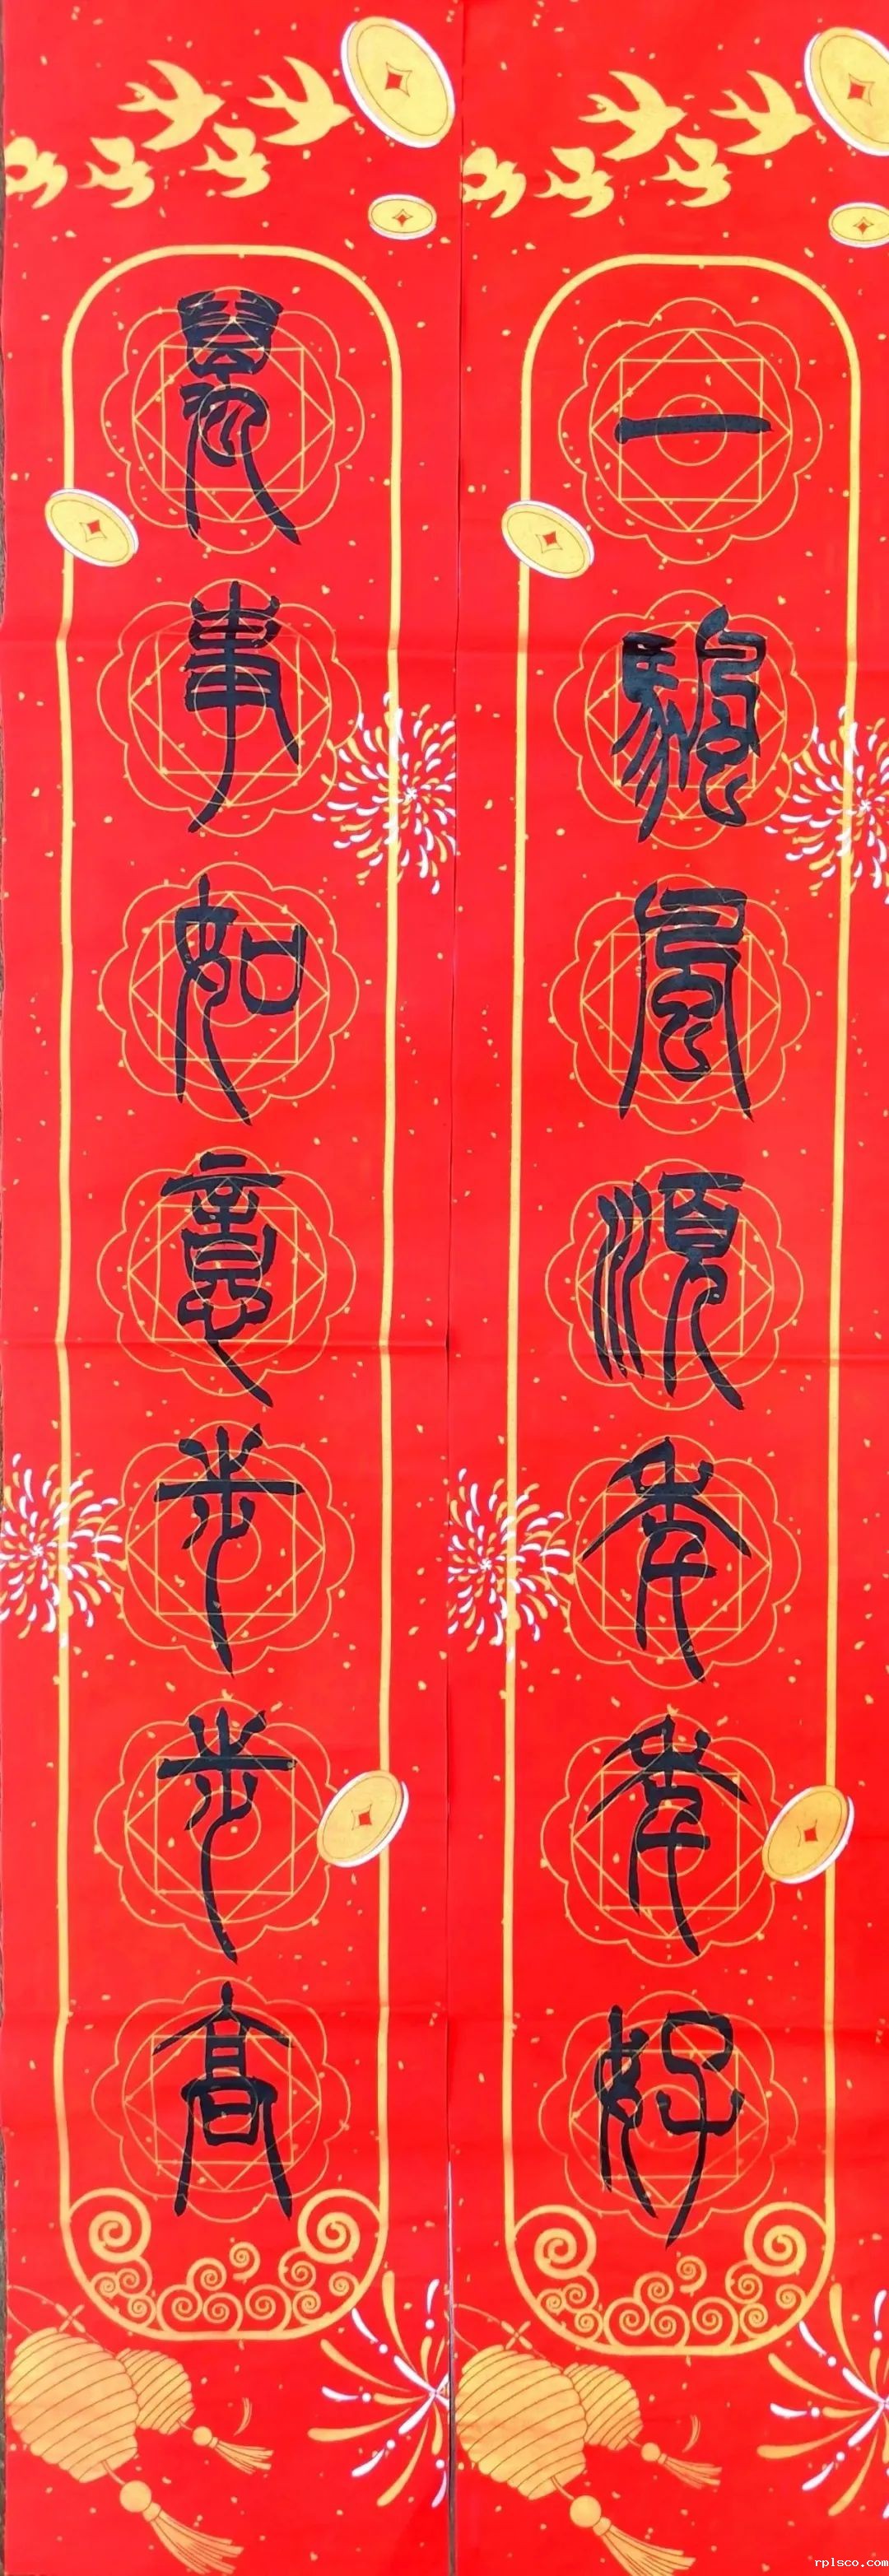 一帆風順年年好
萬事如意步步高
rplsco.com